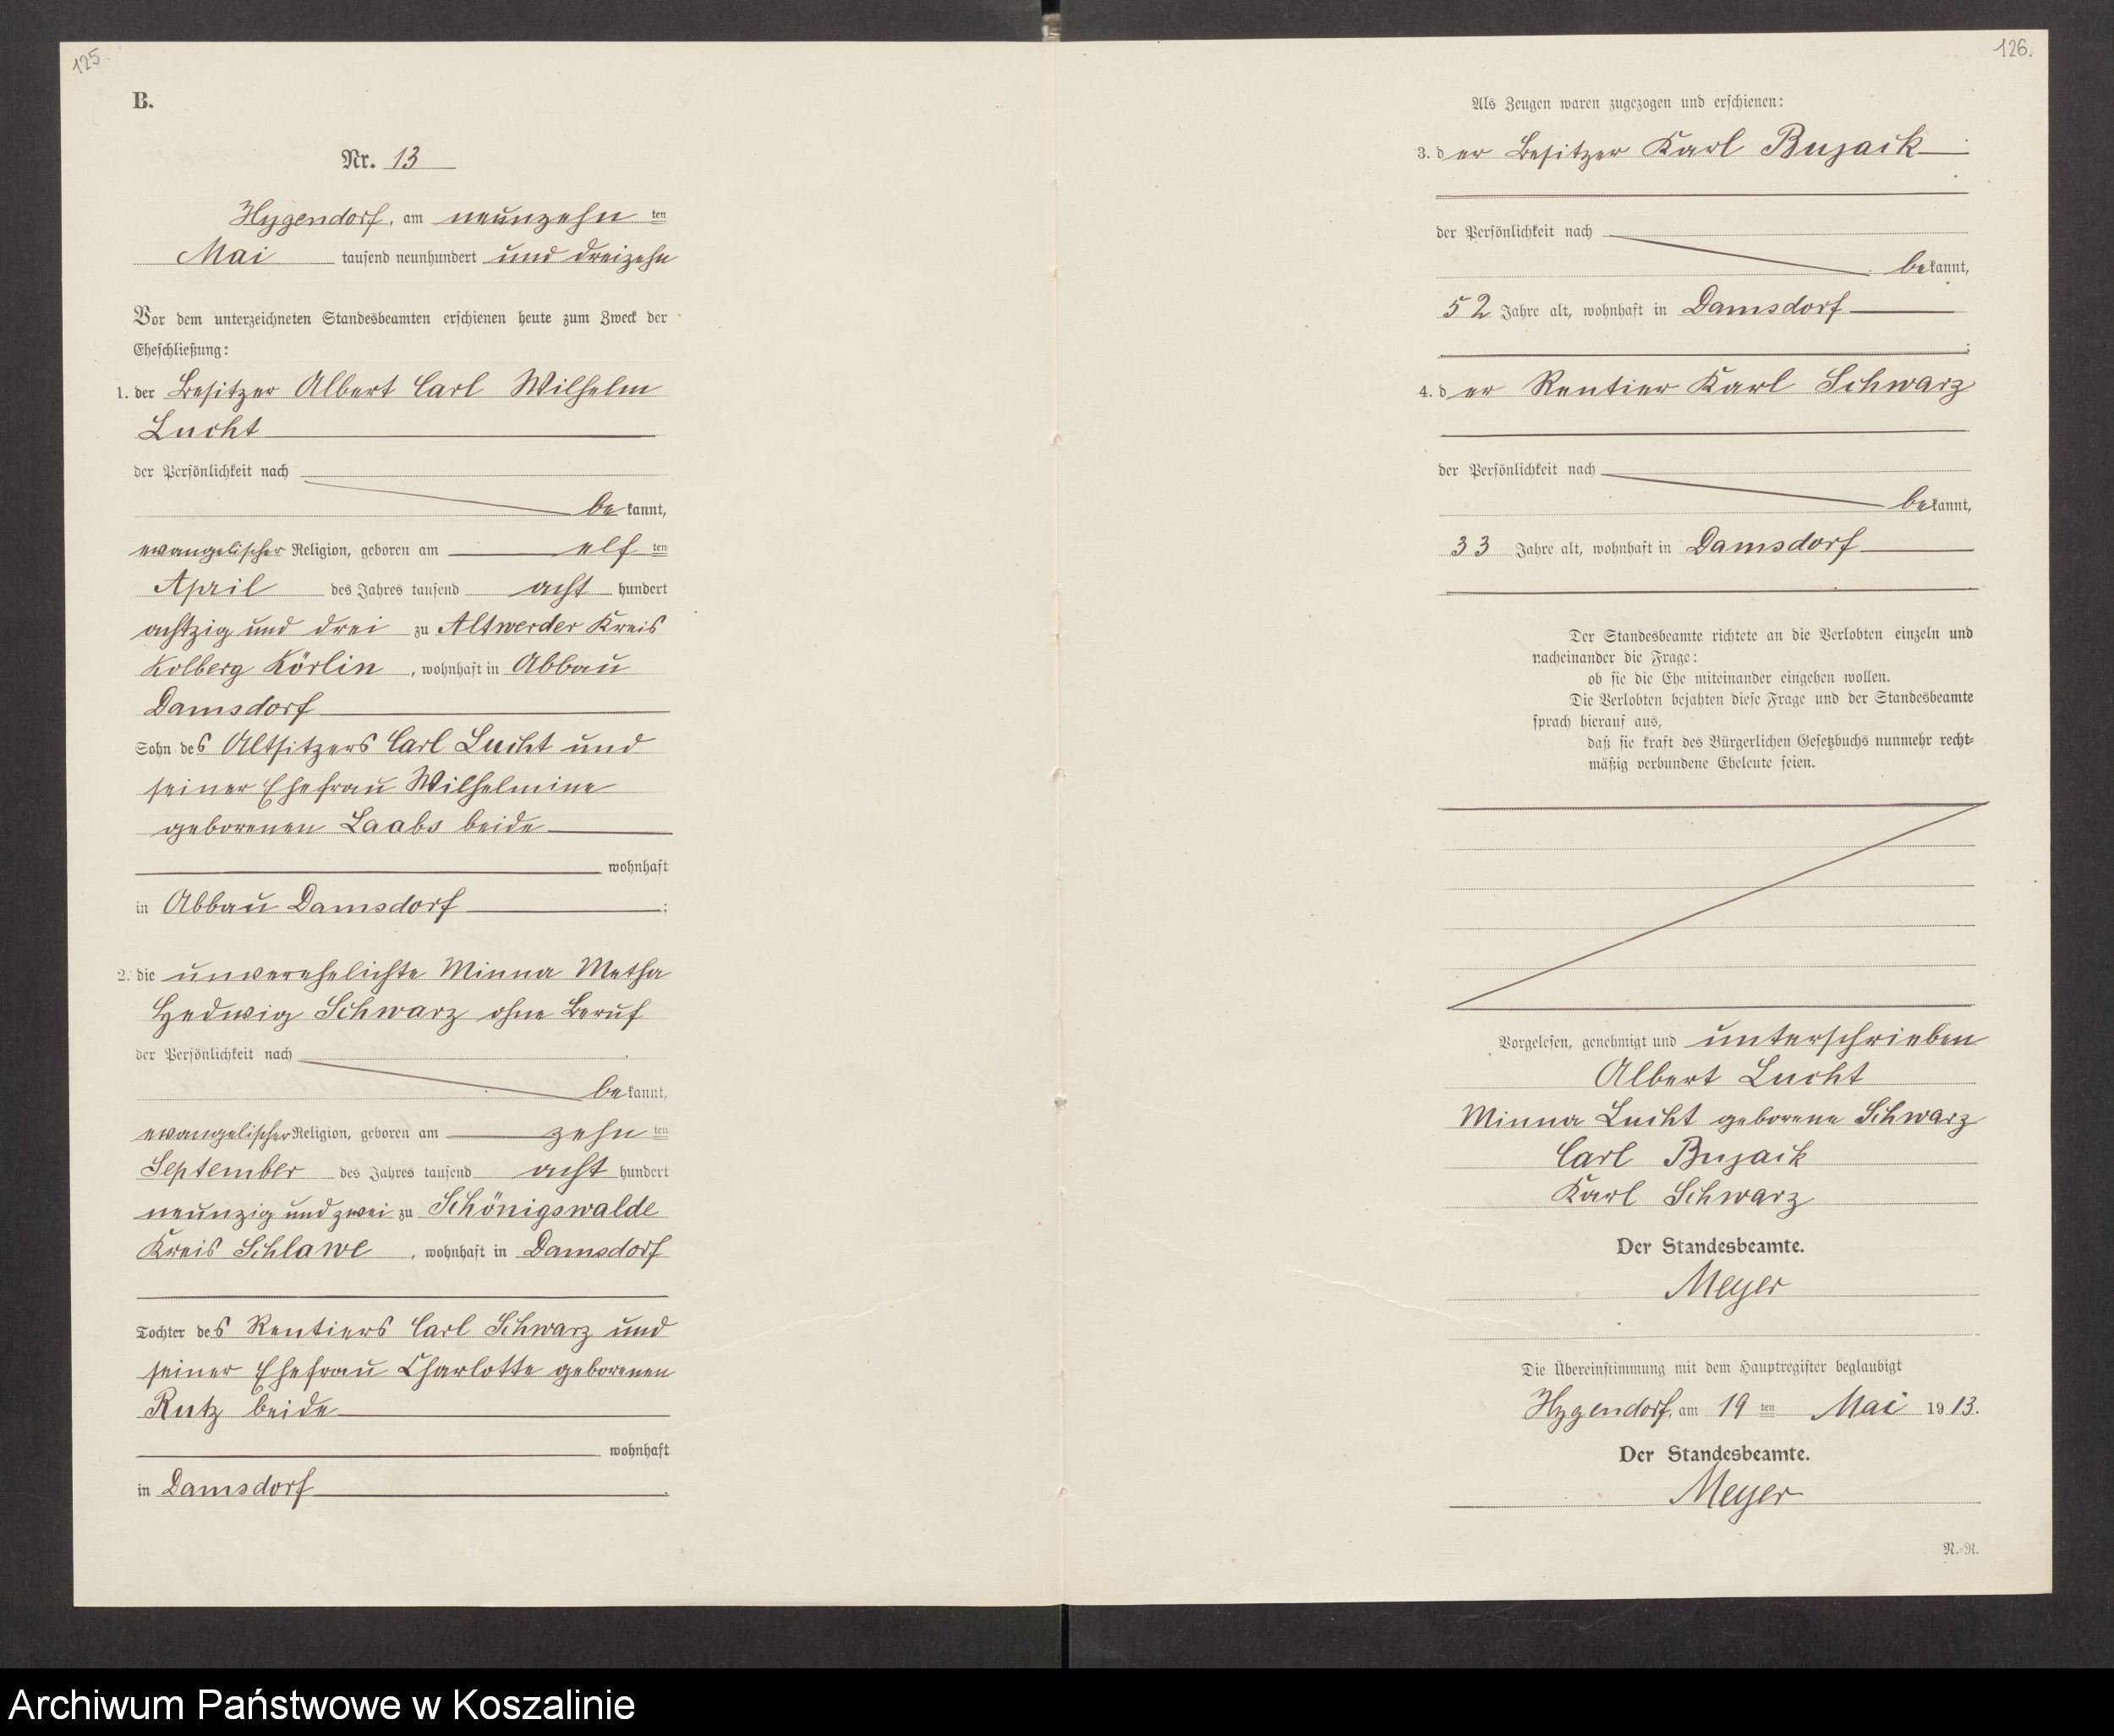 125.
B.
Nr. 13
Hygendorf, am neunzehn ten
Mai tausend neunhundert und dreizehn
Vor dem unterzeichneten Standesbeamten erschienen heute zum Zweck der
Eheschließung:
1. der Besitzer Albert Carl Wilhelm
Lucht
der Persönlichkeit nach
bekannt,
evangelischer Religion, geboren am elf ten
April des Jahres tausend acht hundert
achtzig und drei zu Altwerder Kreis
Kolberg Körlin, wohnhaft in Abbau
Damsdorf
Sohn des Altsitzers Carl Lucht und
seiner Ehefrau Wilhelmine
geborenen Laabs beide
wohnhaft
in Abbau Damsdorf ;
2. die unverehelichte Minna Metha
Hedwig Schwarz ohne Beruf
der Persönlichkeit nach
bekannt,
evangelischer Religion, geboren am zehn ten
September des Jahres tausend acht hundert
neunzig und zwei zu Schönigswalde
Kreis Schlawe, wohnhaft in Damsdorf
Tochter des Rentiers Carl Schwarz und
seiner Ehefrau Charlotte geborenen
Rutz beide
wohnhaft
in Damsdorf .
126.
Als Zeugen waren zugezogen und erschienen:
3. der Besitzer Karl Bujack
der Persönlichkeit nach
bekannt,
52 Jahre alt, wohnhaft in Damsdorf
;
4. der Rentier Karl Schwarz
der Persönlichkeit nach
bekannt,
33 Jahre alt, wohnhaft in Damsdorf
Der Standesbeamte richtete an die Verlobten einzeln und
nacheinander die Frage:
ob sie die Ehe miteinander eingehen wollen.
Die Verlobten bejahten diese Frage und der Standesbeamte
sprach hierauf aus,
daß sie kraft des Bürgerlichen Gesetzbuchs nunmehr recht-
mäßig verbundene Eheleute seien.
Vorgelesen, genehmigt und unterschrieben
Albert Lucht
Minna Lucht geborene Schwarz
Carl Bujack
Karl Schwarz
Der Standesbeamte.
Meyer
Die Übereinstimmung mit dem Hauptregister beglaubigt
Hygendorf, am 19 ten Mai 1913.
Der Standesbeamte.
Meyer
N.-N.
Archiwum Państwowe w Koszalinie